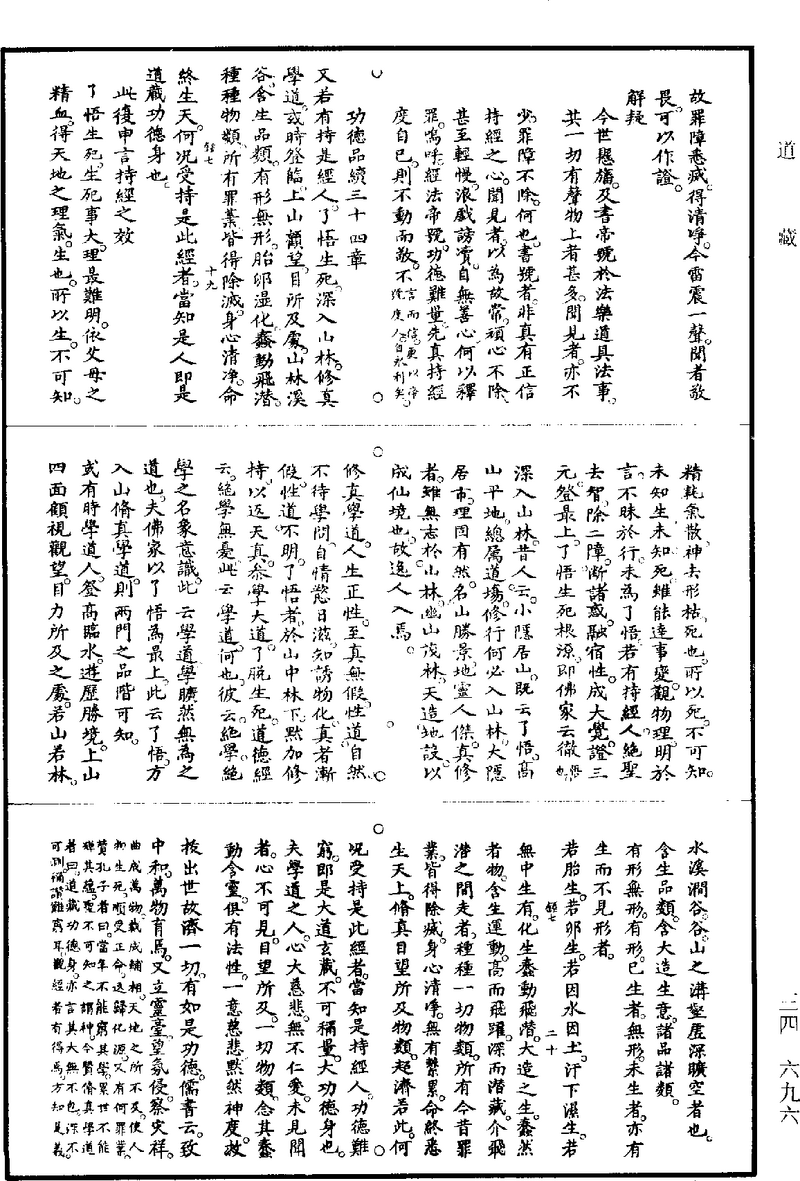 道藏
故罪障悉滅得清淨今雷震一聲聞者敬
畏可以作證
解疑
今世懸旛及書帝號於法樂道具法事
其一切有聲物上者甚多聞見者亦不
少罪障不除何也書號者非真有正信
持經之心聞見者以為故常頑心不除
甚至輕慢浪戲謗瀆自無善心何以釋
罪嗚呼經法帝號功德難量先真持經
度自己則不動而敬不
功德品續三十四章
又若有持是經人了悟生死深入山林修真
學道或時登臨上山顧望目所及處山林溪
谷含生品類有形無形胎卵濕化蠢動飛潛
種種物類所有罪業皆得除滅身心清淨命
十九
終生天何況受持是此經者當知是人即是
道藏功德身也
此復申言持經之效
了悟生死生死事大理最難明依父母之
精血得天地之理氣生也所以生不可知
精耗氣散神去形枯死也所以死不可知
未知生未知死雖能達事變觀物理明於
言不昧於行未為了悟若有持經人絕聖
去智除二障斷諸惑融宿性成大覺證三
元登最上了悟生死根源即佛家云徹悟也
深入山林昔人云小隱居山既云了悟高
山平地總屬道場修行何必入山林大隱
居市理固有然名山勝景地靈人傑真修
者雖無志於山林幽山茂林天造地設以
成仙境也故逸人入焉
修真學道人生正性至真無假性道自然
不待學問自情慾日滋知誘物化真者漸
假性道不明了悟者於山中林下默加修
持以返天真參學大道了脫生死道德經
云絕學無憂此云學道何也彼云絕學絕
學之名象意識此云學道學曠然無為之
道也夫佛家以了悟為最上此云了悟方
入山脩真學道則兩門之品階可知
或有時學道人登高臨水遊歷勝境上山
四面顧視觀望目力所及之處若山若林
水溪澗谷谷山之溝壑虛深曠空者也
含生品類含大造生意諸品諸類
有形無形有形已生者無形未生者亦有
生而不見形者
若胎生若卵生若因水因土汙下濕生若
二十
無中生有化生蠢動飛潛大造之生蠢然
者物含生運動高而飛躍深而潛藏介飛
潛之間走者種種一切物類所有今昔罪
業皆得除滅身心清淨無有繫累命終悉
生天上脩真目望所及物類起濟若此何
況受持是此經者當知是持經人功德難
窮即是大道玄藏不可稱量大功德身也
夫學道之人心大慈悲無不仁愛未見聞
者心不可見目望所及一切物類念其蠢
動含靈俱有法性一意慈悲默然神度故
拔出世故濟一切有如是功德儒書云致
中和萬物育焉又立靈臺望氛祲察災祥
曲成萬物裁成輔相天地之所不及使人
物生死順受正命返歸化源又有何罪業
贊孔子者曰當年不能窮其學累世不能
殫其蘊聖不可知之謂神今贊脩真學道
者曰道藏功德身亦言其大無不包深不
可測稱讚難窮耳觀經者有得焉方知是義
三四 六九六